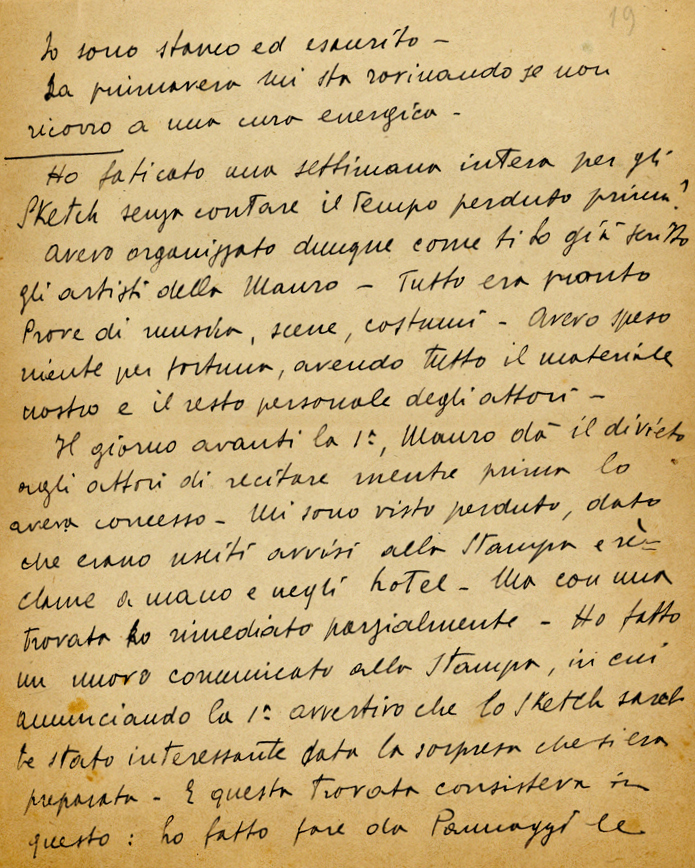 19
Io sono stanco ed esaurito –
La primavera mi sta rovinando se non
ricorro a una cura energica –
Ho faticato una settimana intera per gli
Sketch senza contare il tempo perduto prima.
Avevo organizzato dunque come ti ho già scritto
gli artisti della Mauro – Tutto era pronto
Prove di musica, scene, costumi – Avevo speso
niente per fortuna, avendo tutto il materiale
nostro e il resto personale degli attori –
Il giorno avanti la 1ª, Mauro dà il divieto
agli attori di recitare mentre prima lo
aveva concesso – Mi sono visto perduto, dato
che erano usciti avvisi alla Stampa e rè-
clame a mano e negli hotel – Ma con una
trovata ho rimediato parzialmente – Ho fatto
un nuovo comunicato alla Stampa, in cui
annunciando la 1ª avvertivo che lo Sketch sareb
be stato interessante data la sorpresa che si era
preparata – E questa trovata consisteva in
questo : ho fatto fare da Pannaggi le